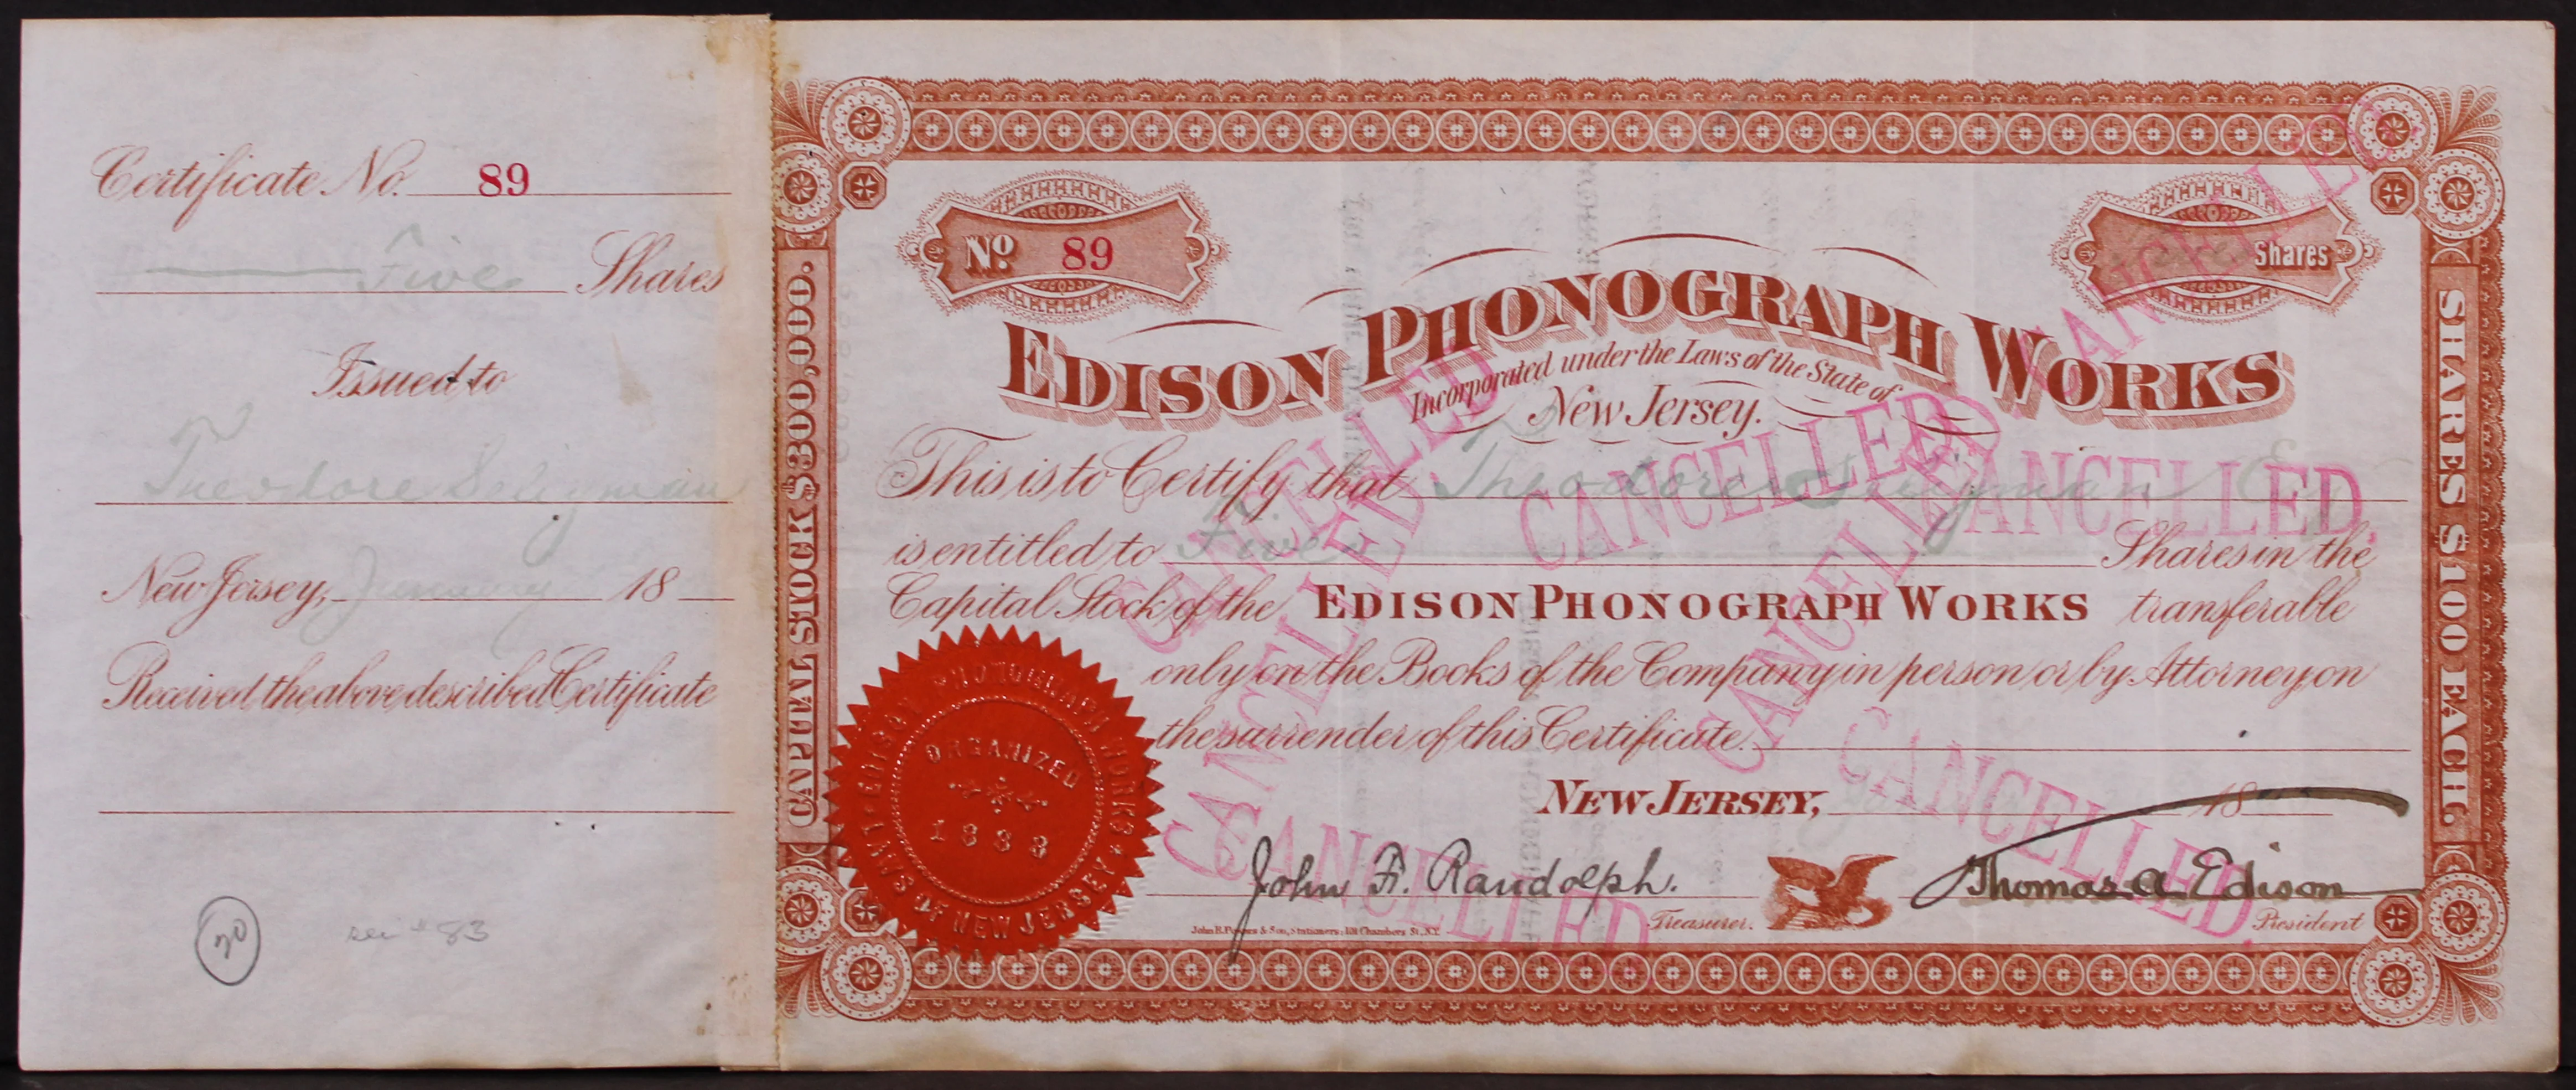 Certificate No. 89
Five Shares
Issued to
Theodore Seligman
New Jersey, January 18
Received the above described Certificate
20
see #83
CAPITAL STOCK $300,000.
No 89
Five Shares
EDISON PHONOGRAPH WORKS
Incorporated under the Laws of the State of
New Jersey.
This is to Certify that Theodore Seligman
is entitled to Five Shares in the
Capital Stock of the EDISON PHONOGRAPH WORKS transferable
only on the Books of the Company in person or by Attorney on
the surrender of this Certificate.
NEW JERSEY, 18
John F. Randolph. Treasurer.
Thomas A Edison President
EDISON PHONOGRAPH WORKS
LAWS OF NEW JERSEY
ORGANIZED
1888
SHARES $100 EACH.
CANCELLED.
CANCELLED
CANCELLED
CANCELLED.
CANCELLED
CANCELLED
CANCELLED.
CANCELLED